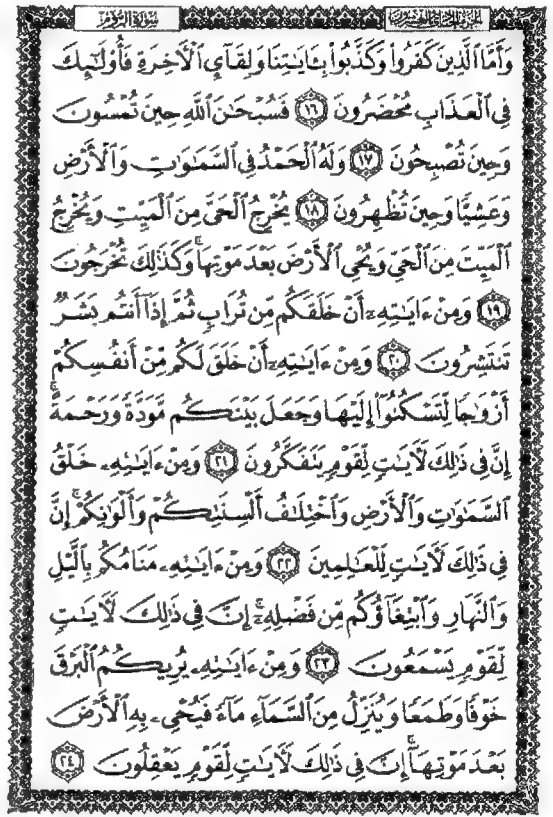 الجزء الحادي والعشرون
سورة الروم
وَأَمَّا ٱلَّذِينَ كَفَرُوا۟ وَكَذَّبُوا۟ بِـَٔايَـٰتِنَا وَلِقَآئِ ٱلْـَٔاخِرَةِ فَأُو۟لَـٰٓئِكَ
فِى ٱلْعَذَابِ مُحْضَرُونَ ١٦ فَسُبْحَـٰنَ ٱللَّهِ حِينَ تُمْسُونَ
وَحِينَ تُصْبِحُونَ ١٧ وَلَهُ ٱلْحَمْدُ فِى ٱلسَّمَـٰوَٰتِ وَٱلْأَرْضِ
وَعَشِيًّا وَحِينَ تُظْهِرُونَ ١٨ يُخْرِجُ ٱلْحَىَّ مِنَ ٱلْمَيِّتِ وَيُخْرِجُ
ٱلْمَيِّتَ مِنَ ٱلْحَىِّ وَيُحْىِ ٱلْأَرْضَ بَعْدَ مَوْتِهَا ۚ وَكَذَٰلِكَ تُخْرَجُونَ
١٩ وَمِنْ ءَايَـٰتِهِۦٓ أَنْ خَلَقَكُم مِّن تُرَابٍ ثُمَّ إِذَآ أَنتُم بَشَرٌ
تَنتَشِرُونَ ٢٠ وَمِنْ ءَايَـٰتِهِۦٓ أَنْ خَلَقَ لَكُم مِّنْ أَنفُسِكُمْ
أَزْوَٰجًا لِّتَسْكُنُوٓا۟ إِلَيْهَا وَجَعَلَ بَيْنَكُم مَّوَدَّةً وَرَحْمَةً ۚ
إِنَّ فِى ذَٰلِكَ لَـَٔايَـٰتٍ لِّقَوْمٍ يَتَفَكَّرُونَ ٢١ وَمِنْ ءَايَـٰتِهِۦ خَلْقُ
ٱلسَّمَـٰوَٰتِ وَٱلْأَرْضِ وَٱخْتِلَـٰفُ أَلْسِنَتِكُمْ وَأَلْوَٰنِكُمْ ۚ إِنَّ
فِى ذَٰلِكَ لَـَٔايَـٰتٍ لِّلْعَـٰلِمِينَ ٢٢ وَمِنْ ءَايَـٰتِهِۦ مَنَامُكُم بِٱلَّيْلِ
وَٱلنَّهَارِ وَٱبْتِغَآؤُكُم مِّن فَضْلِهِۦٓ ۚ إِنَّ فِى ذَٰلِكَ لَـَٔايَـٰتٍ
لِّقَوْمٍ يَسْمَعُونَ ٢٣ وَمِنْ ءَايَـٰتِهِۦ يُرِيكُمُ ٱلْبَرْقَ
خَوْفًا وَطَمَعًا وَيُنَزِّلُ مِنَ ٱلسَّمَآءِ مَآءً فَيُحْىِۦ بِهِ ٱلْأَرْضَ
بَعْدَ مَوْتِهَآ ۚ إِنَّ فِى ذَٰلِكَ لَـَٔايَـٰتٍ لِّقَوْمٍ يَعْقِلُونَ ٢٤